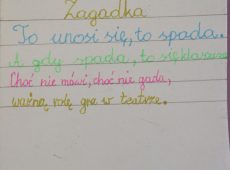 Zagadka
To unosi się, to spada.
A gdy spada, to się
Choć nie mówi, choć nie gada,
ważną rolę gra w teatrze.